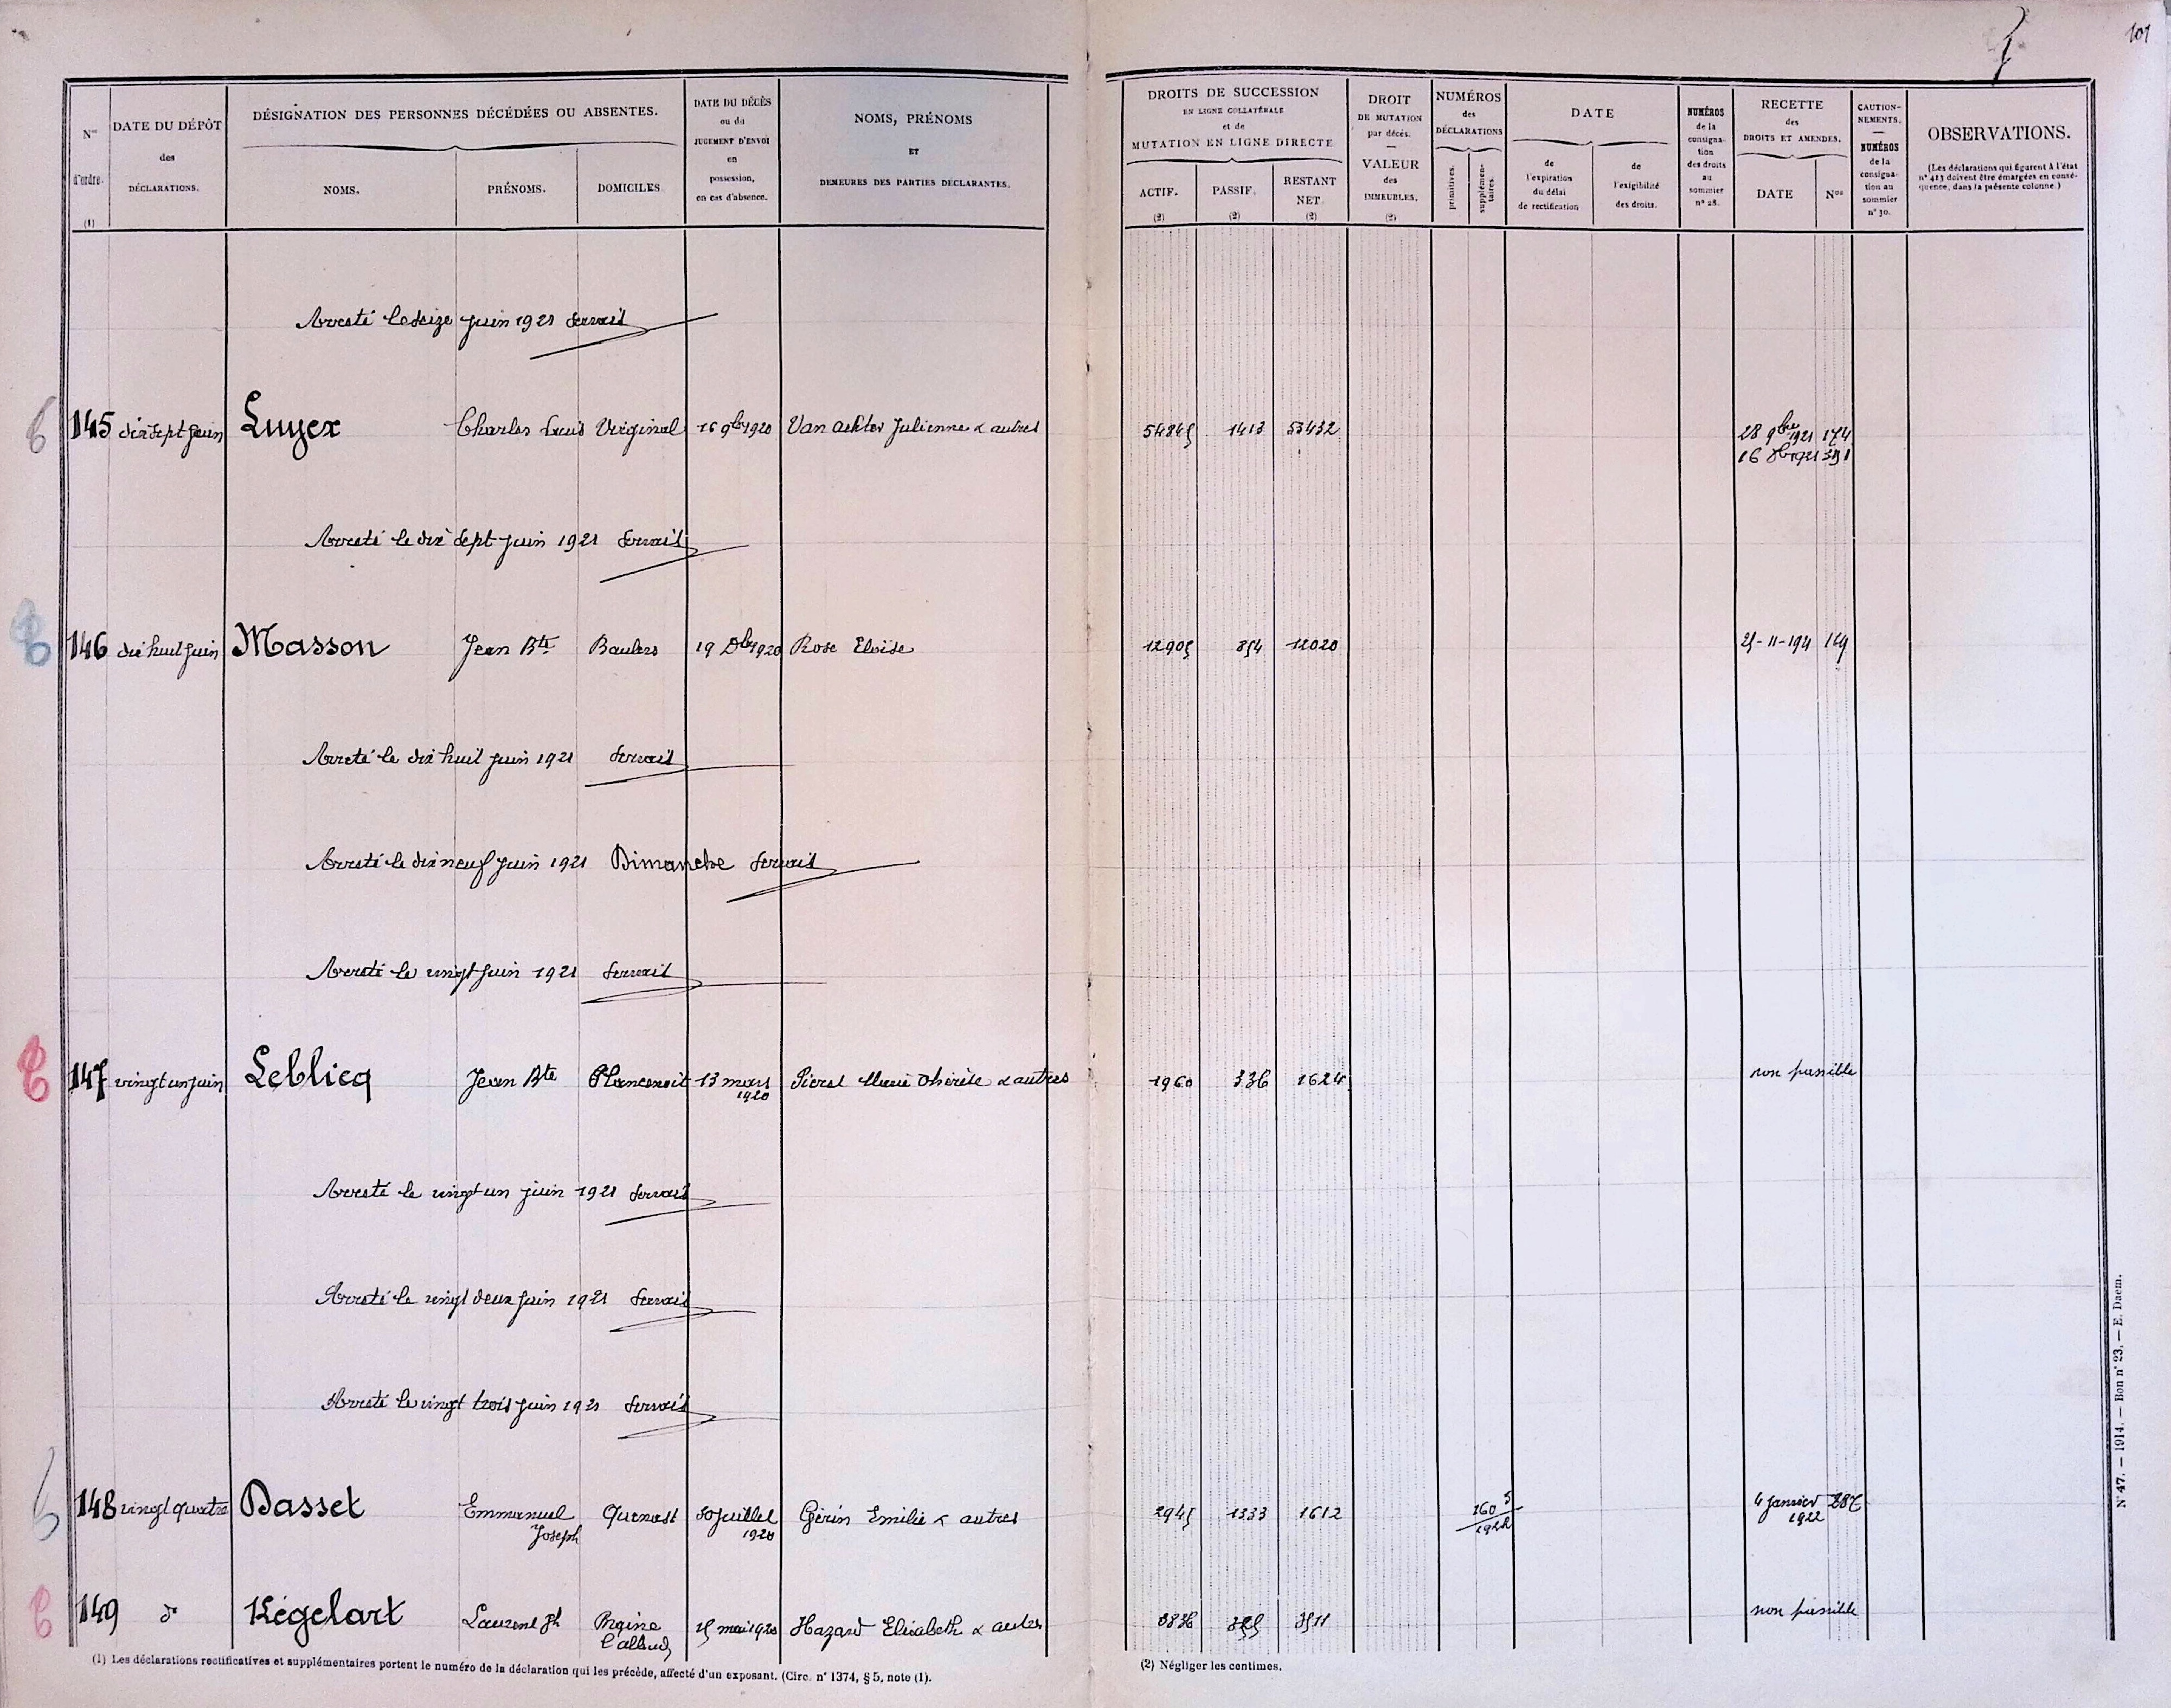 101
Nos d'ordre. (1)
DATE DU DÉPÔT des DÉCLARATIONS.
DÉSIGNATION DES PERSONNES DÉCÉDÉES OU ABSENTES.
NOMS. PRÉNOMS. DOMICILES
DATE DU DÉCÈS ou du JUGEMENT D'ENVOI en possession, en cas d'absence.
NOMS, PRÉNOMS ET DEMEURES DES PARTIES DÉCLARANTES.
DROITS DE SUCCESSION EN LIGNE COLLATÉRALE et de MUTATION EN LIGNE DIRECTE
ACTIF. (2) PASSIF. (2) RESTANT NET. (2)
DROIT DE MUTATION par décès. — VALEUR des IMMEUBLES. (2)
NUMÉROS des DÉCLARATIONS
primitives. supplémentaires.
DATE
de l'expiration du délai de rectification
de l'exigibilité des droits.
NUMÉROS de la consignation des droits au sommier n° 28.
RECETTE des DROITS ET AMENDES.
DATE Nos
CAUTIONNEMENTS. — NUMÉROS de la consignation au sommier n° 30.
OBSERVATIONS.
(Les déclarations qui figurent à l'état n° 413 doivent être émargées en conséquence, dans la présente colonne.)
Arreté le seize juin 1921 Servais
145 dix sept juin Luyex Charles Louis Virginal 16 9bre 1920 Van Julienne & autres 54845 1413 53432 28 9bre 1921 174
16 Xbre 1921
Arreté le dix sept juin 1921 Servais
146 dix huit juin Masson Jean Bte Baulers 19 Xbre 1920 Rose Eloïse 12905 12020 25-11-1921 169
Arreté le dix huit juin 1921 Servais
Arreté le dix neuf juin 1921 Dimanche Servais
Arreté le vingt juin 1921 Servais
147 vingt un juin Leblicq Jean Bte Plancenoit 13 mars 1920 Pieret Marie Thérèse & autres 1960 336 1624 non passible
Arreté le vingt un juin 1921 Servais
Arreté le vingt deux juin 1921 Servais
Arreté le vingt trois juin 1921 Servais
148 vingt quatre Dasset Emmanuel Joseph Quenast 30 juillet 1920 Gérin Emilie & autres 2945 1333 1612 1922 4 janvier 1922 287
149 do Kégelart Laurent Jh Braine l'alleud 15 mai 1920 Hazard Elisabeth & autres 3836 325 3511 non passible
(1) Les déclarations rectificatives et supplémentaires portent le numéro de la déclaration qui les précède, affecté d'un exposant. (Circ. n° 1374, § 5, note (1).
(2) Négliger les centimes.
N° 47. — 1914. — Bon n° 23. — E. Daem.